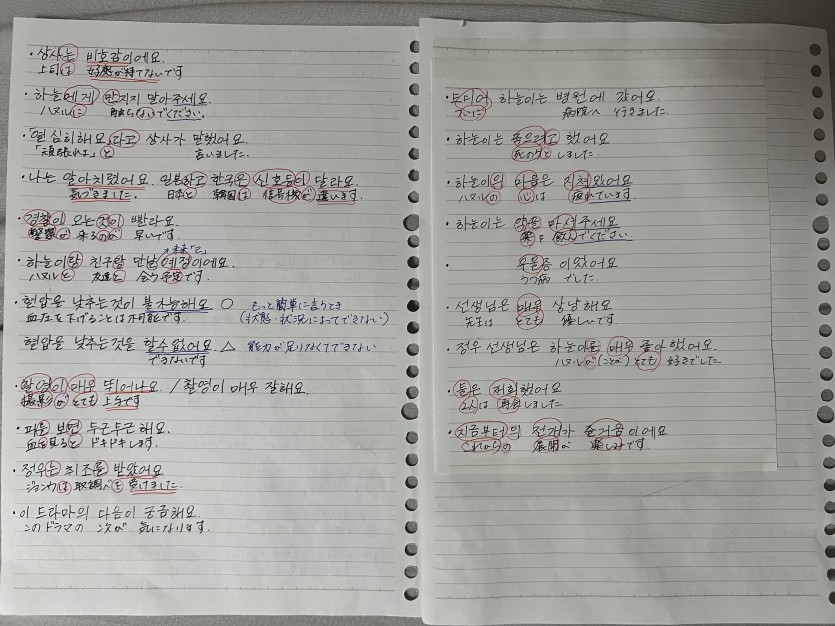 ・상사는 비호감이에요.
上司は 好感が持てないです
・하늘에게 만지지 말아주세요.
ハヌルに 触らないでください.
・"열심히해요"라고 상사가 말했어요.
「頑張れよ」と 言いました.
・나는 알아치렸어요 일본하고 한국은 신호등이 달라요.
気づきました. 日本と 韓国は 信号機が 違います
・경찰이 오는것이 빨라요.
警察が 来るのが 早いです
・하늘이랑 친구랑 만날 예정이에요.
ハヌルと 友達と 会う予定です
・혈압을 낮추는것이 불가능해요. ○ もっと簡単に言うとき
血圧を下げることは不可能です. (状態・状況によってできない)
혈압을 낮추는것을 할수없어요. △ 能力が足りなくてできない
できないです
・촬영이 매우 뛰어나요. / 촬영이 매우 잘해요.
撮影がとても上手です
・피를 보면 두근두근해요.
血を見ると ドキドキします.
・정우는 취조를 받았어요
ジョンウは取調べを受けました.
・이 드라마의 다음이 궁금해요.
このドラマの 次が 気になります.
・드디어 하늘이는 병원에 갔어요.
ついに 病院へ 行きました.
・하늘이는 죽으려고 했어요
死のうと しました.
・하늘이의 마음은 지쳐있어요
ハヌルの 心は 疲れています
・하늘이는 약을 마셔주세요
薬を 飲んでください.
・ 우울증 이었어요
うつ病 でした.
・선생님은 매우 상냥해요.
先生は とても 優しいです
・정우 선생님은 하늘이를 매우 좋아했어요.
ハヌルが(ことが)とても 好きでした
・둘은 재회했어요
2人は 再会しました.
・지금부터의 전개가 즐거움이에요
これからの 展開が 楽しみです.